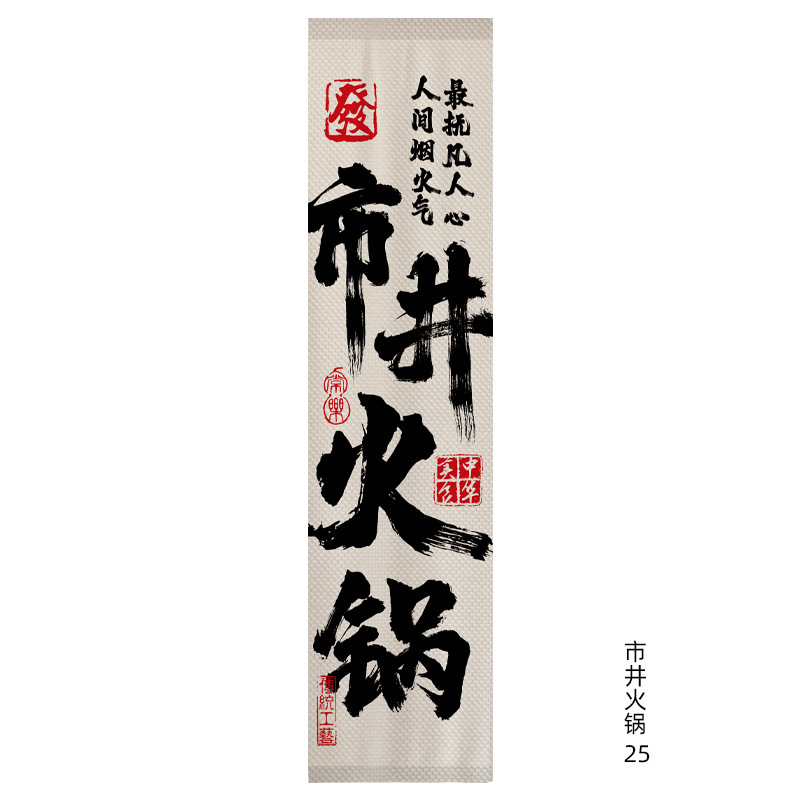 發
人间烟火气
最抚凡人心
市井火锅
常樂
中华
美食
傳統工藝
市井火锅
25